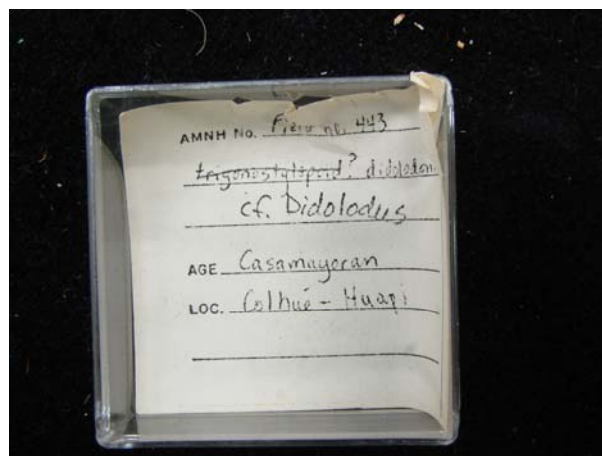 AMNH No. Field no. 443
trigonostylopoid? didolodon
cf. Didolodus
AGE Casamayoran
LOC. Colhué - Huapi